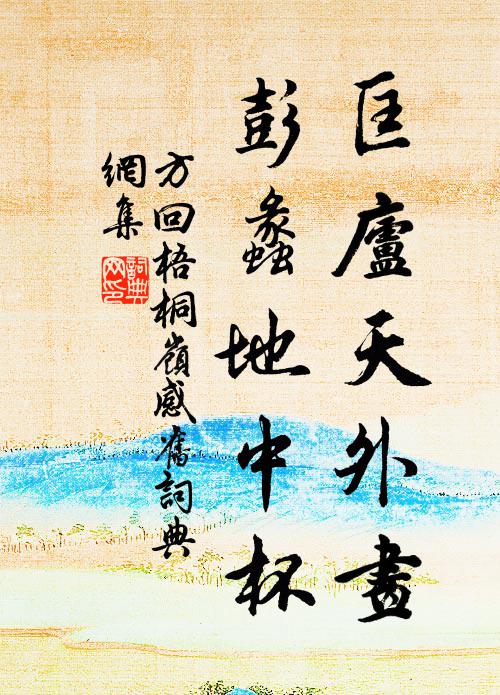 匡廬天外畫
彭蠡地中杯
方回梧桐嶺感舊詞典
網集
詞典網印